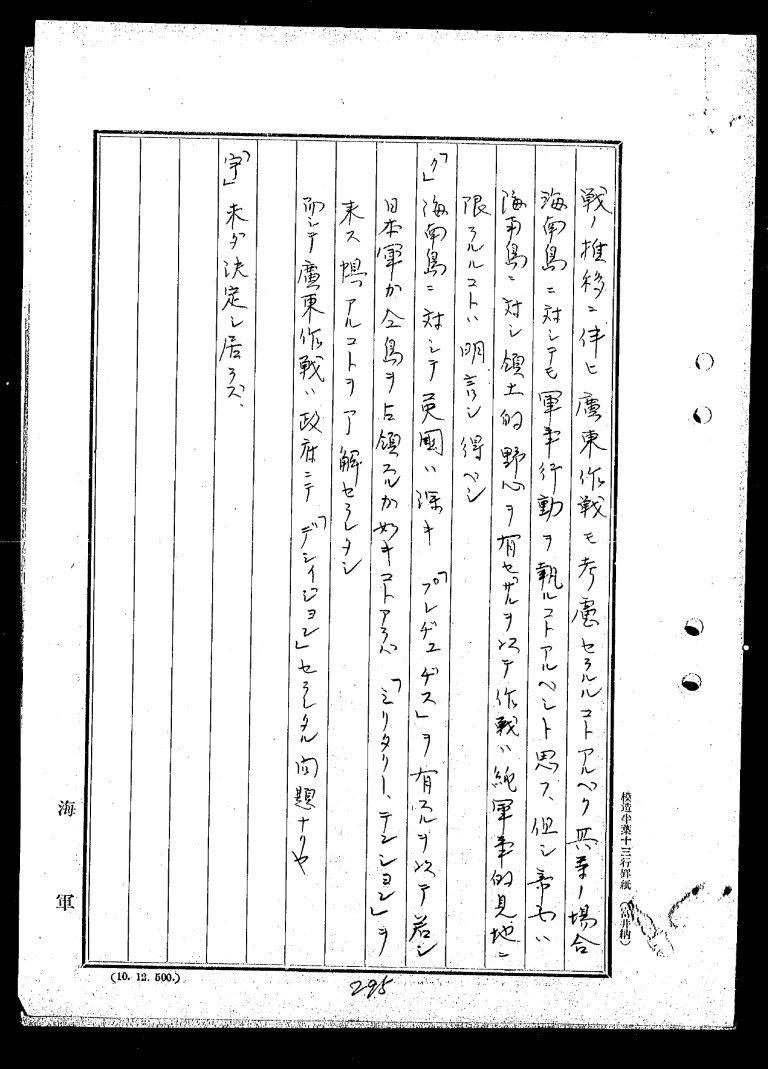 戦ノ推移ニ伴ヒ廣東作戦モ考慮セラルルコトアルベク 其等ノ場合
海南島ニ対シテモ軍事行動ヲ執ルコトアルベシト思フ、但シ吾々ハ
海南島ニ対シ領土的野心ヲ有セザルヲ以テ作戦ハ純軍事的見地ニ
限ラルルコトハ明言シ得ベシ
「ク」海南島ニ対シテ英國ハ深キ「プレヂュヂス」ヲ有スルヲ以テ若シ
日本軍カ仝島ヲ占領スルカ如キコトアラバ「ミリタリー、テンション」ヲ
来ス惧アルコトヲ了解セラレタシ
而シテ廣東作戦ハ政府ニテ「デシイジョン」セラレタル問題ナリヤ
「宇」未ダ決定シ居ラズ、
模造半葉十三行罫紙(富井納)
海軍
(10. 12. 500.)
295